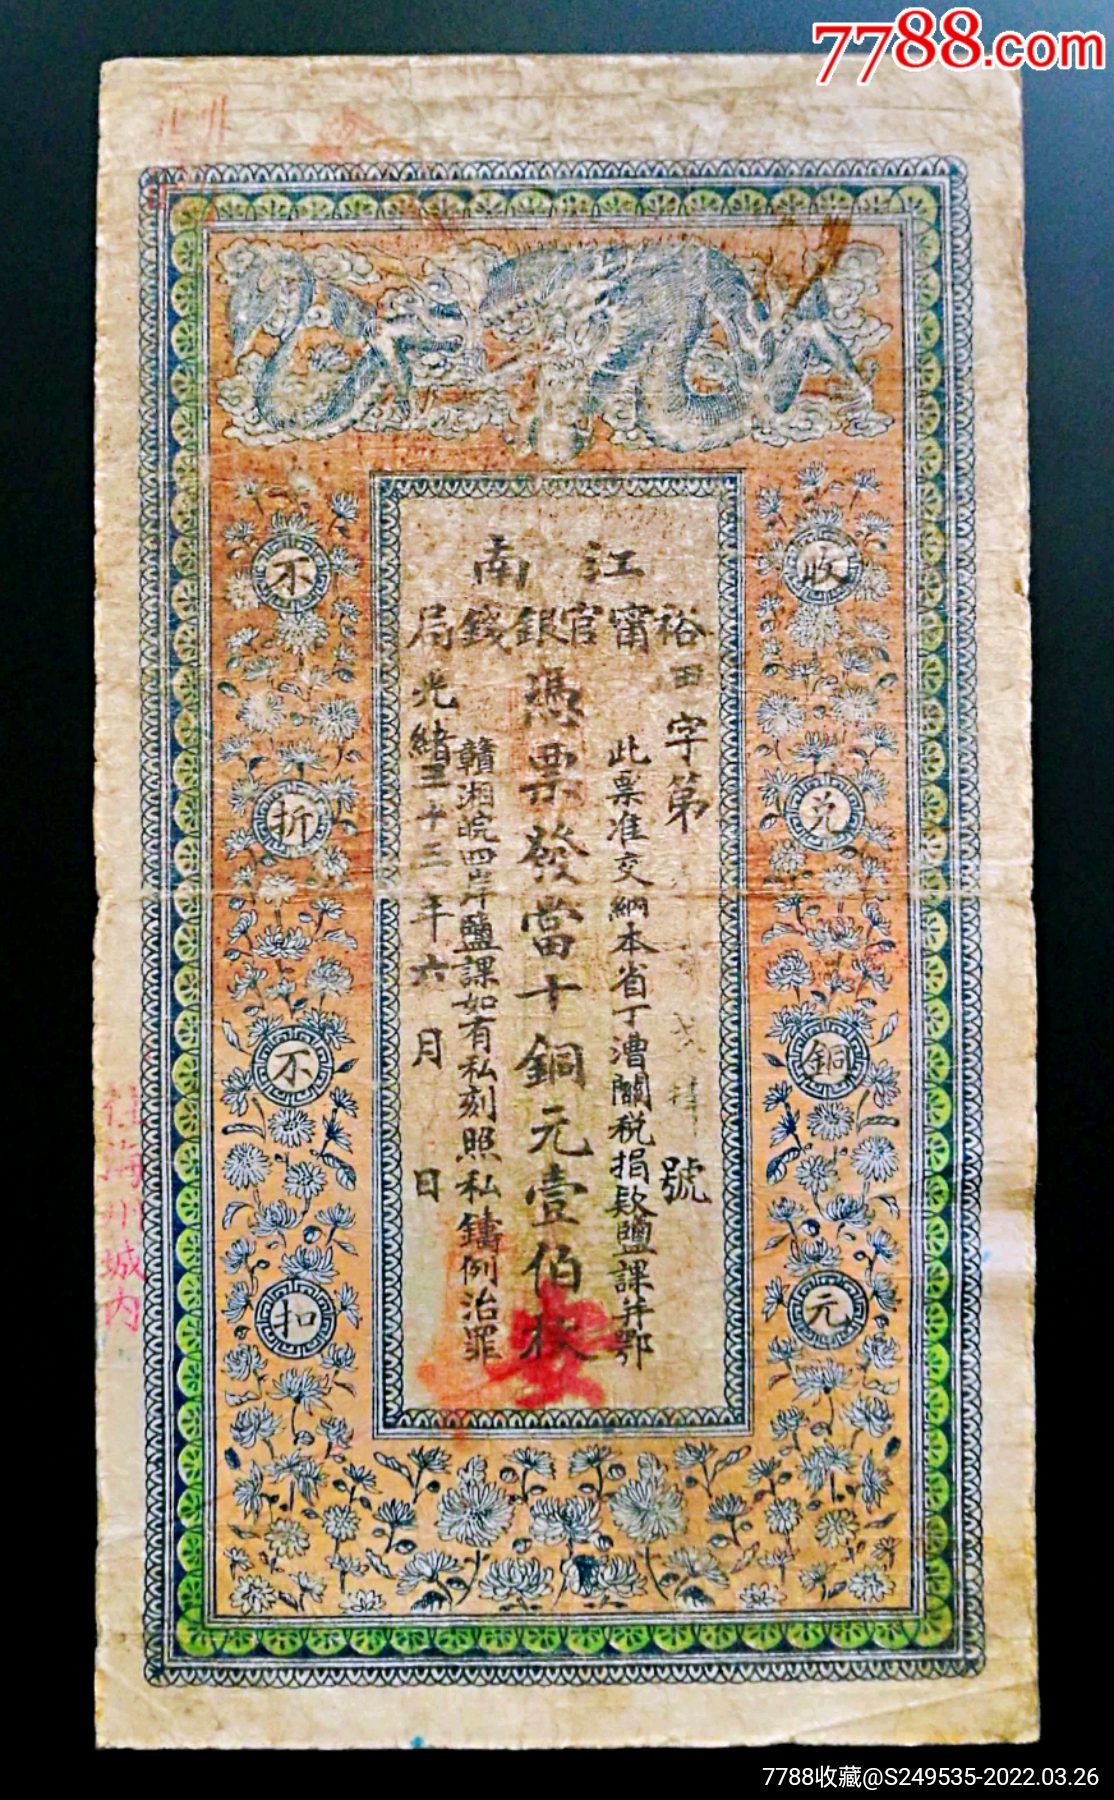 7788.com
江南
裕甯官銀錢局
田字第
號
此票准交納本省丁漕關稅捐款鹽課并鄂
憑票發當十銅元壹伯枚
贛湘皖四岸鹽課如有私刻照私鑄例治罪
光緒三十三年六月 日
收兌銅元
不折不扣
海州城內
7788收藏@S249535-2022.03.26